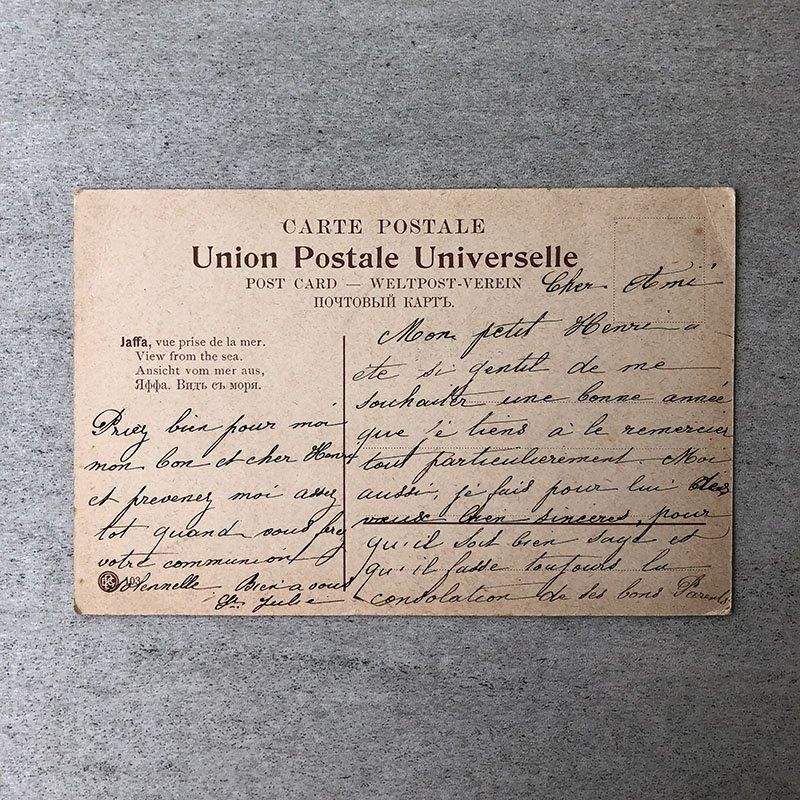 CARTE POSTALE
Union Postale Universelle
POST CARD — WELTPOST-VEREIN
ПОЧТОВЫЙ КАРТЪ.
Jaffa, vue prise de la mer.
View from the sea.
Ansicht vom mer aus,
Яффа. Видъ съ моря.
Cher Ami
Mon petit Henri a
éte si gentil de me
souhaiter une bonne année
que je tiens à le remercier
tout particulierement. Moi
aussi, je fais pour lui des
vœux bien sinceres, pour
qu'il soit bien sage et
qu'il fasse toujours la
consolation de ses bons Parents
Priez bien pour moi
mon bon et cher Henri
et prevenez moi assez
tot quand vous
votre communion
Solennelle Bien à vous
Sr Julie
103